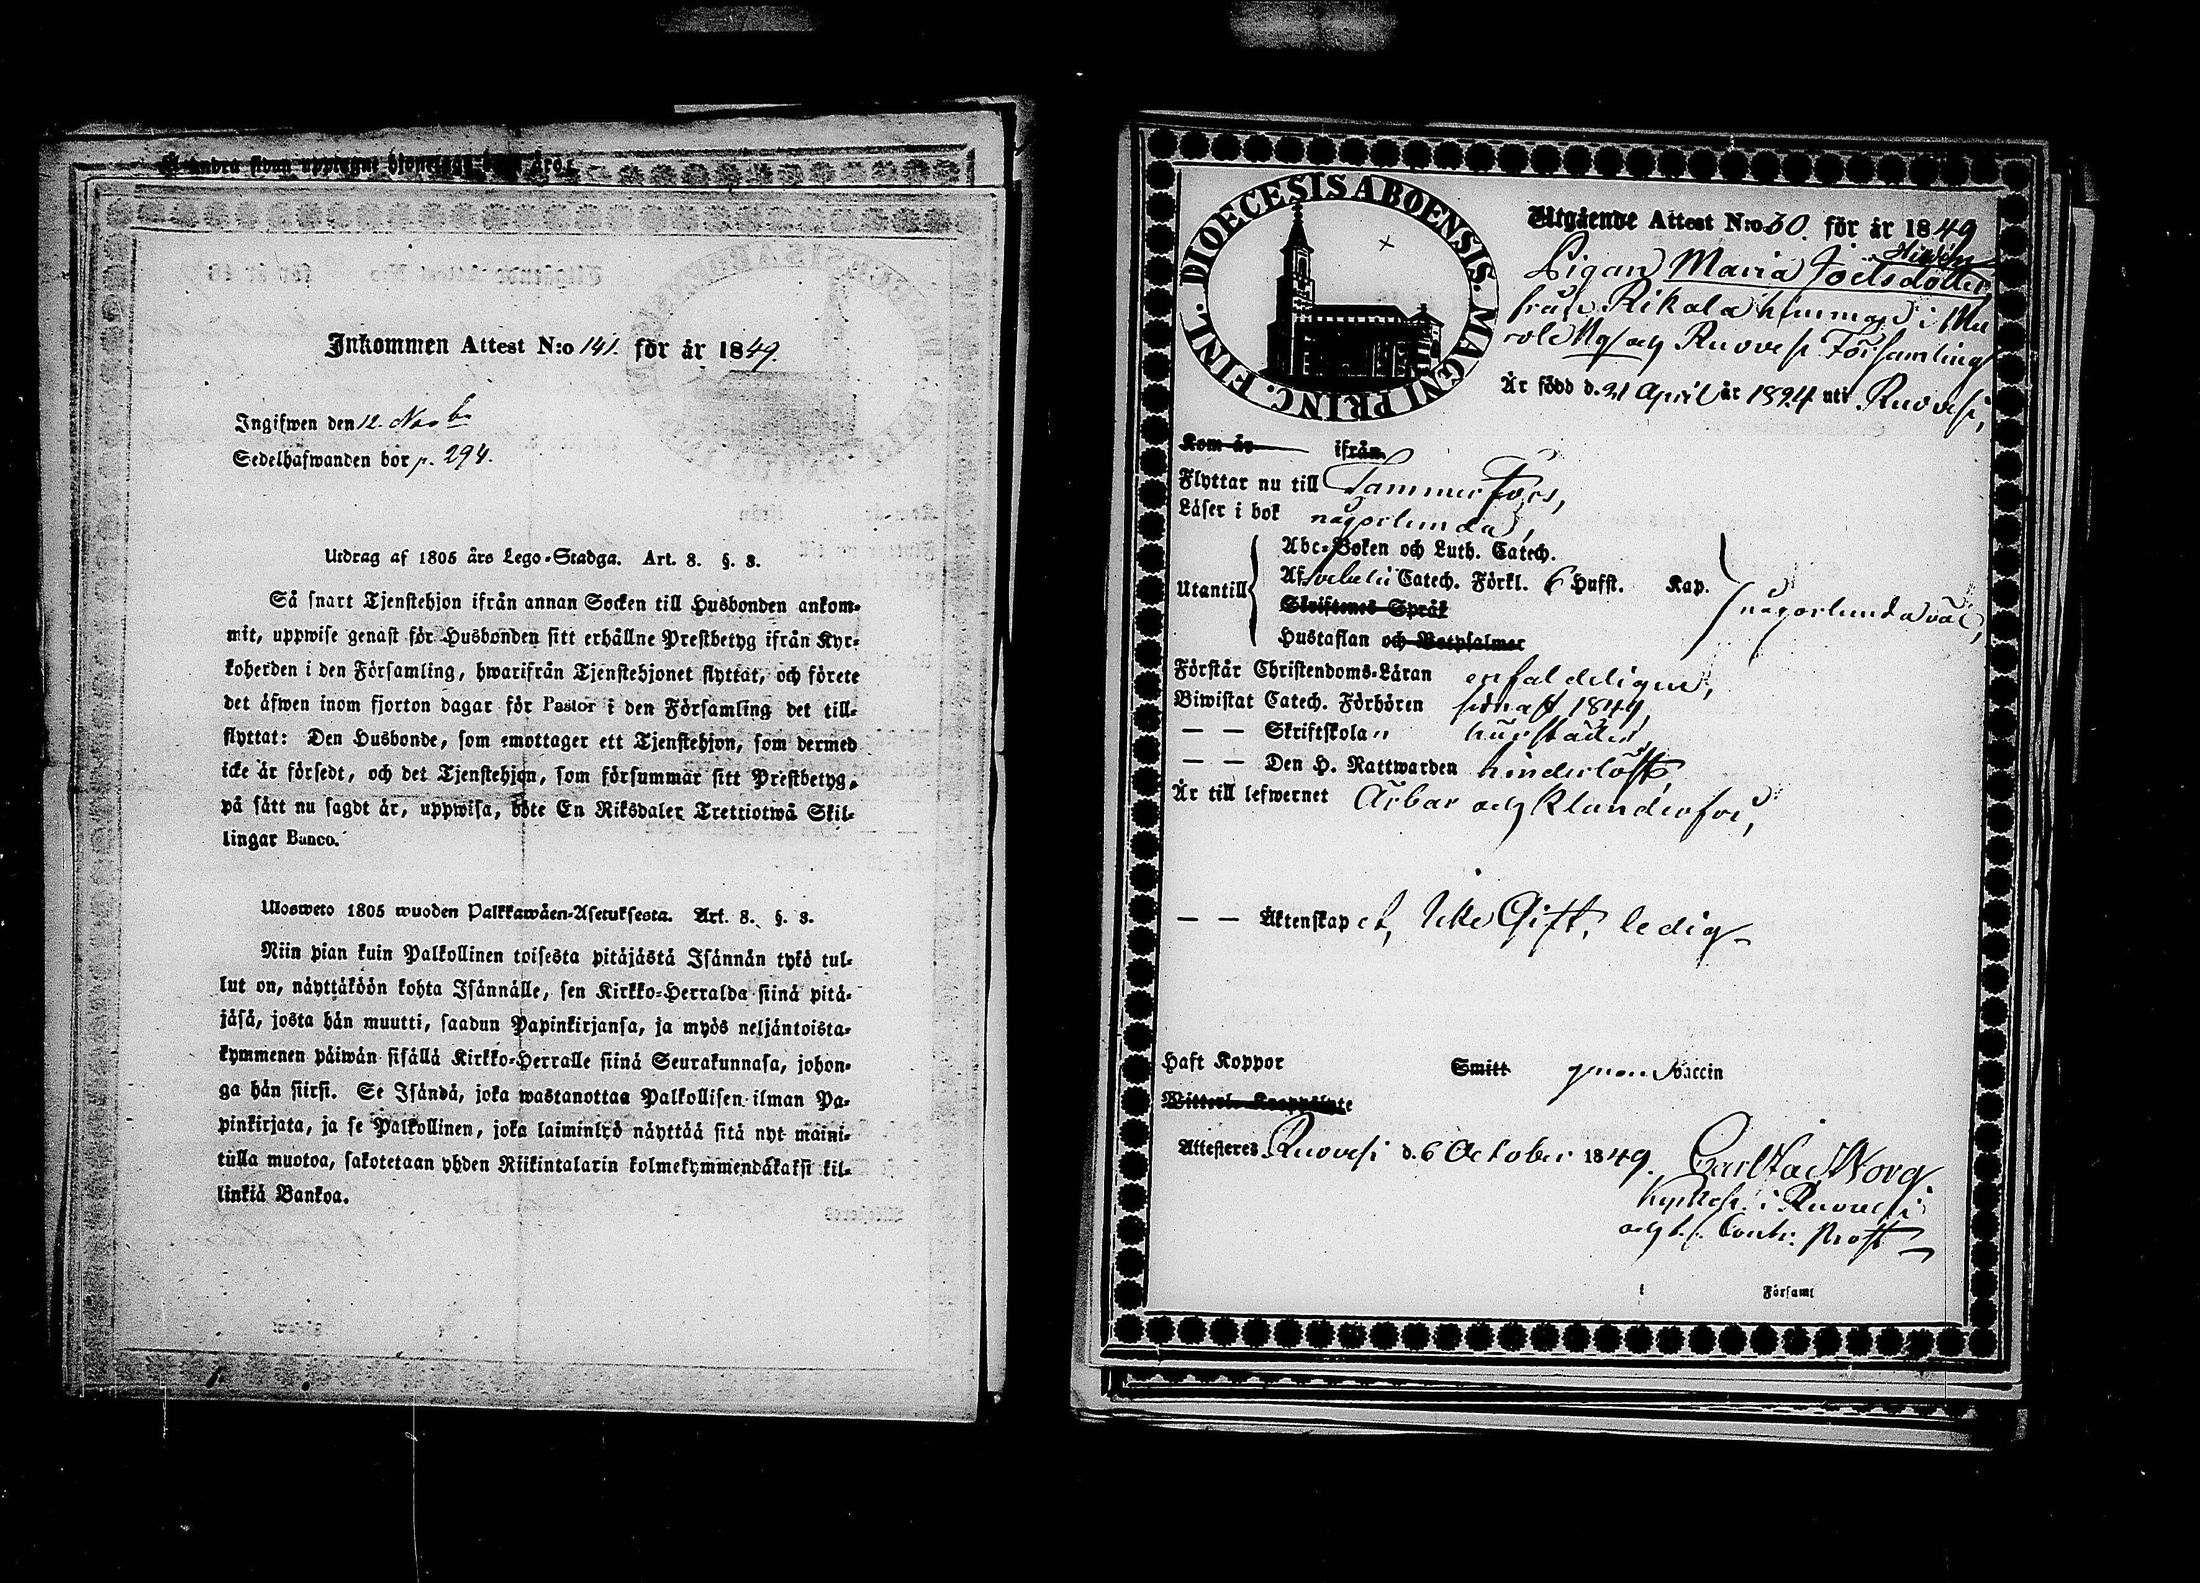 Inkommen Attest N:o 141. för år 1849.
Ingifwen den 12. Novbr
Sedelhafwanden bör p. 294.
Utdrag af 1805 års Lego-Stadga. Art. 8. §. 8.
Så snart Tjenstehjon ifrån annan Socken till Husbonden ankom-
mit, uppwise genast för Husbonden sitt erhållne Prestbetyg ifrån Kyr-
koherden i den Församling, hwarifrån Tjenstehjonet flyttat, och förete
det äfwen inom fjorton dagar för Pastor i den Församling det till-
flyttat: Den Husbonde, som emottager ett Tjenstehjon, som dermed
icke är försedt, och det Tjenstehjon, som försummar sitt Prestbetyg,
på sätt nu sagdt är, uppwisa, böte En Riksdaler Trettiotwå Skil-
lingar Banco.
Ulosweto 1805 wuoden Palkkawäen-Asetuksesta. Art. 8. §. 8.
Niin pian kuin Palkollinen toisesta pitäjästä Isännän tykö tul-
lut on, näyttäköön kohta Isännälle, sen Kirkko-Herralda siinä pitä-
jäsä, josta hän muutti, saadun Papinkirjansa, ja myös neljäntoista-
kymmenen päiwän sisällä Kirkko-Herralle siinä Seurakunnasa, johon-
ga hän siirsi. Se Isändä, joka wastanottaa Palkollisen ilman Pa-
pinkirjata, ja se Palkollinen, joka laiminlyö näyttää sitä nyt maini-
tulla muotoa, sakotetaan yhden Riikintalarin kolmekymmendäkaksi kil-
linkiä Bankoa.
DIOECESIS ABOENSIS. MAGNI PRINC. FINL.
Utgående Attest N:o 30. för år 1849
Pigan Maria Joelsdotter
från Rikala hemman i Mu
role By och Ruovesi Församling
Är född d. 21 April år 1824 uti Ruovesi,
Kom år ifrån
Flyttar nu till Tammerfors,
Läser i bok någorlunda,
Utantill
Abc-Boken och Luth. Catech.
Af Catech. Förkl. 6 Hufst. Kap.
Skriftenes Språk
någorlunda väl,
Hustaflan och Botpsalmer
Förstår Christendoms-Läran enfaldeligen,
Biwistat Catech. Förhören sednast 1849,
— — Skriftskolan
— — Den H. Nattwarden hinderlöst
Är till lefwernet Ärbar och klanderfri,
— — Äktenskapet, Icke Gift, ledig
Haft Koppor Smitt genom Vaccin
Attesteres Ruovesi d. 6 October 1849.
Kyrkoh. i Ruovesi
och Contr. Prost
Församl